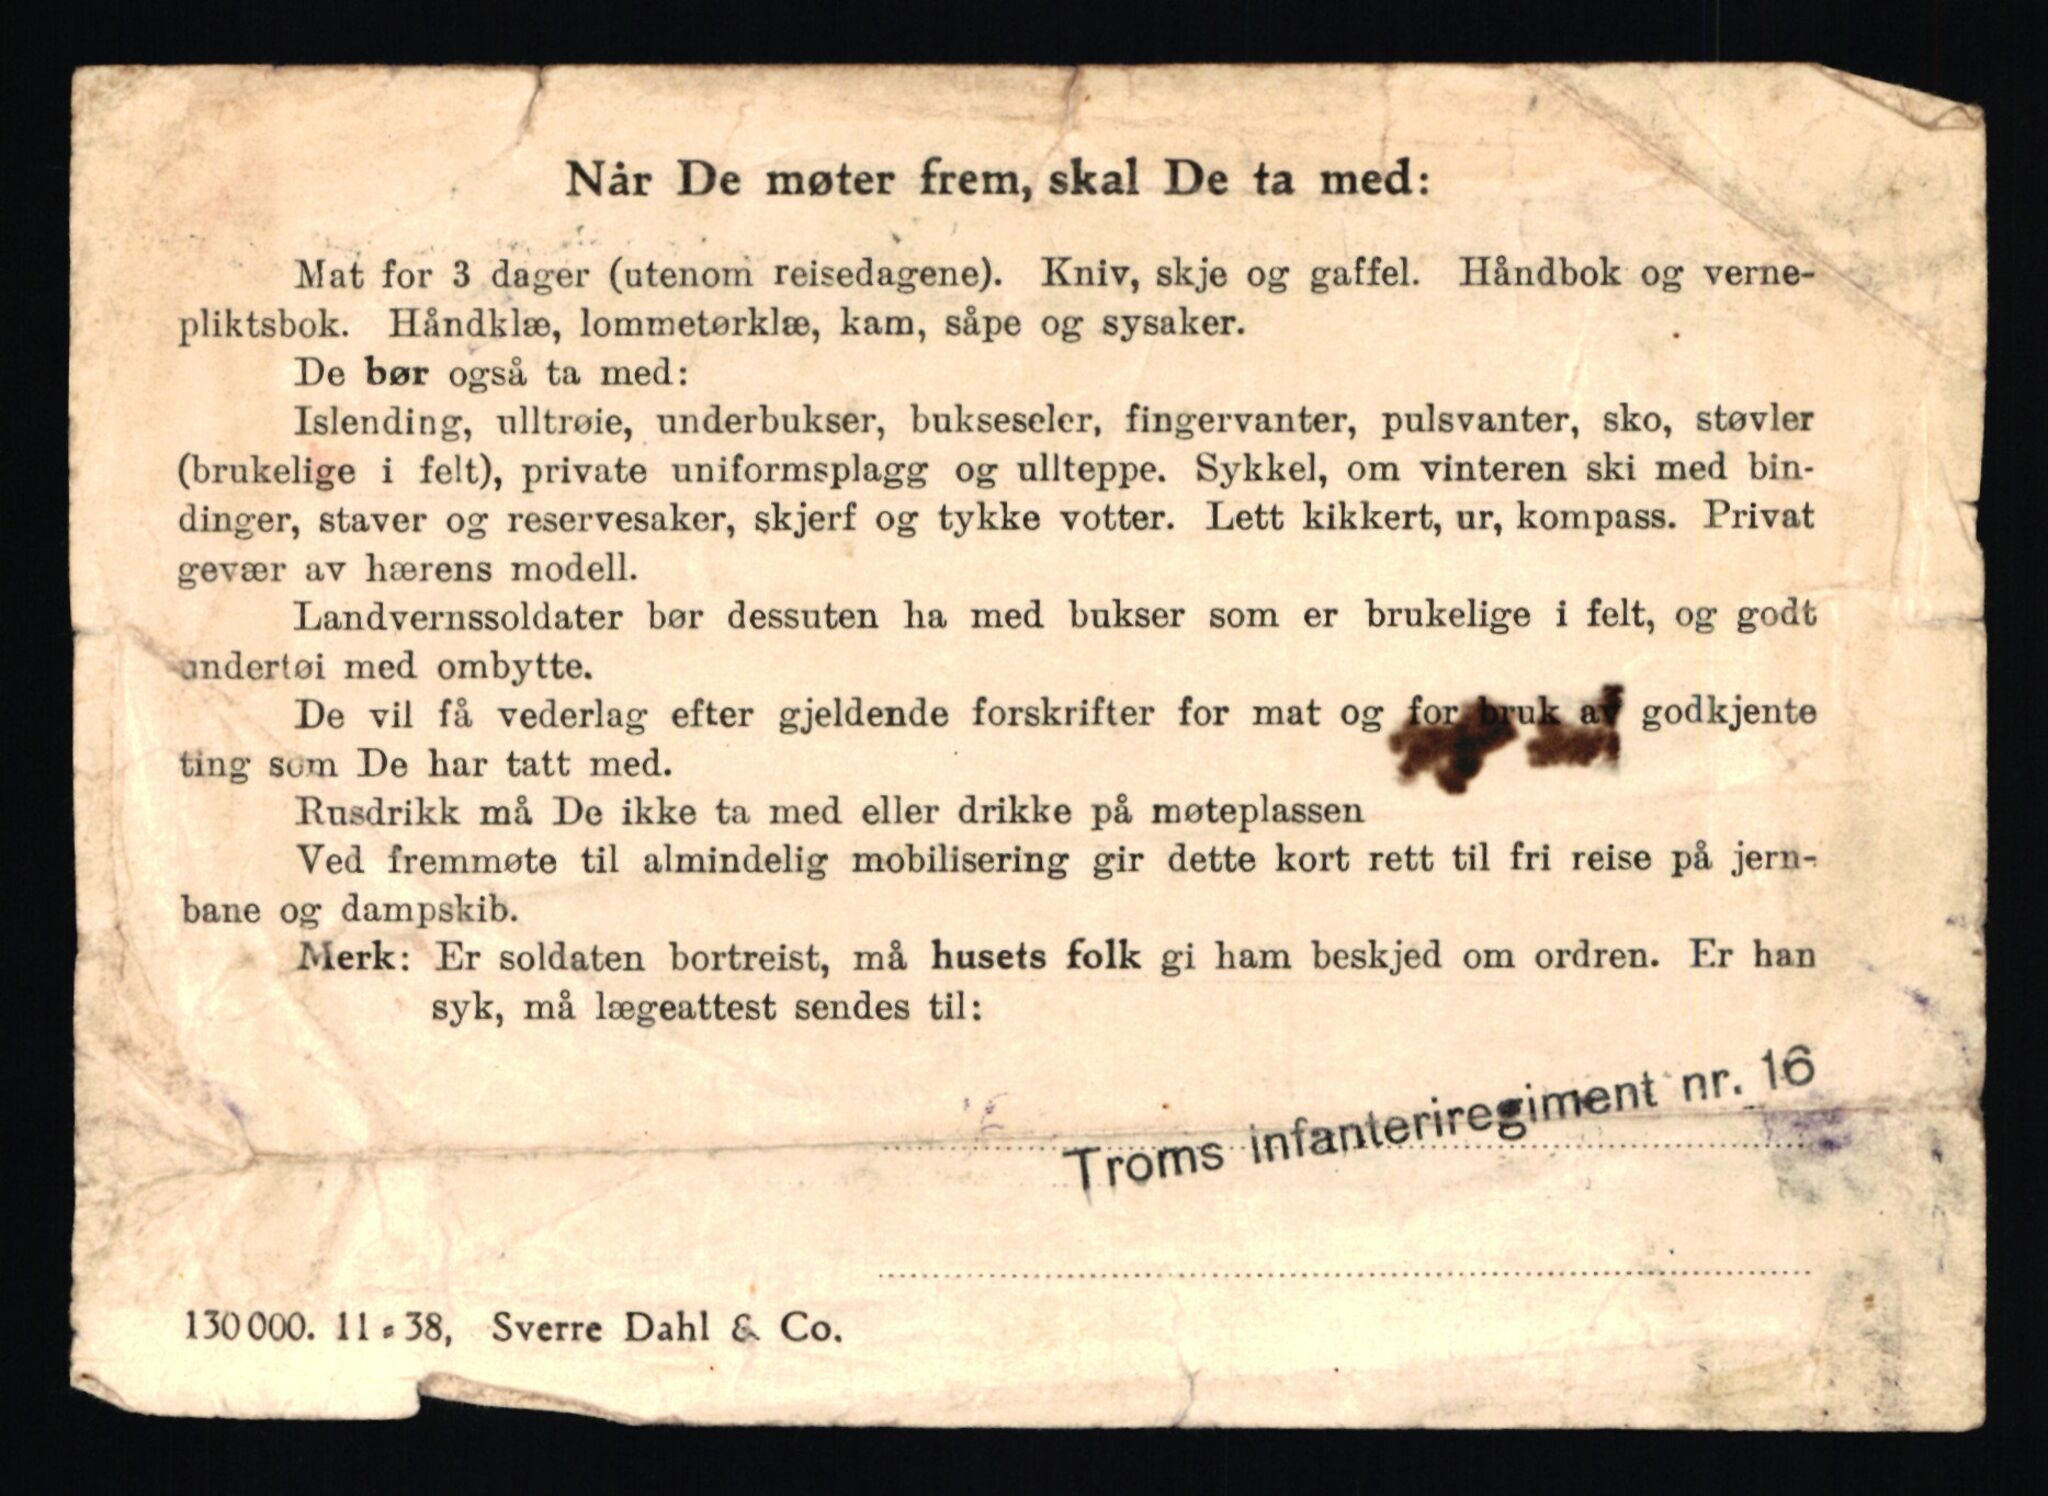 Når De møter frem, skal De ta med:
Mat for 3 dager (utenom reisedagene). Kniv, skje og gaffel. Håndbok og verne-
pliktsbok. Håndklæ, lommetørklæ, kam, såpe og sysaker.
De bør også ta med:
Islending, ulltrøie, underbukser, bukseseler, fingervanter, pulsvanter, sko, støvler
(brukelige i felt), private uniformsplagg og ullteppe. Sykkel, om vinteren ski med bin-
dinger, staver og reservesaker, skjerf og tykke votter. Lett kikkert, ur, kompass. Privat
gevær av hærens modell.
Landvernssoldater bør dessuten ha med bukser som er brukelige i felt, og godt
undertøi med ombytte.
De vil få vederlag efter gjeldende forskrifter for mat og for bruk av godkjente
ting som De har tatt med.
Rusdrikk må De ikke ta med eller drikke på møteplassen
Ved fremmøte til almindelig mobilisering gir dette kort rett til fri reise på jern-
bane og dampskib.
Merk: Er soldaten bortreist, må husets folk gi ham beskjed om ordren. Er han
syk, må lægeattest sendes til:
Troms infanteriregiment nr. 16
130 000. 11-38, Sverre Dahl & Co.